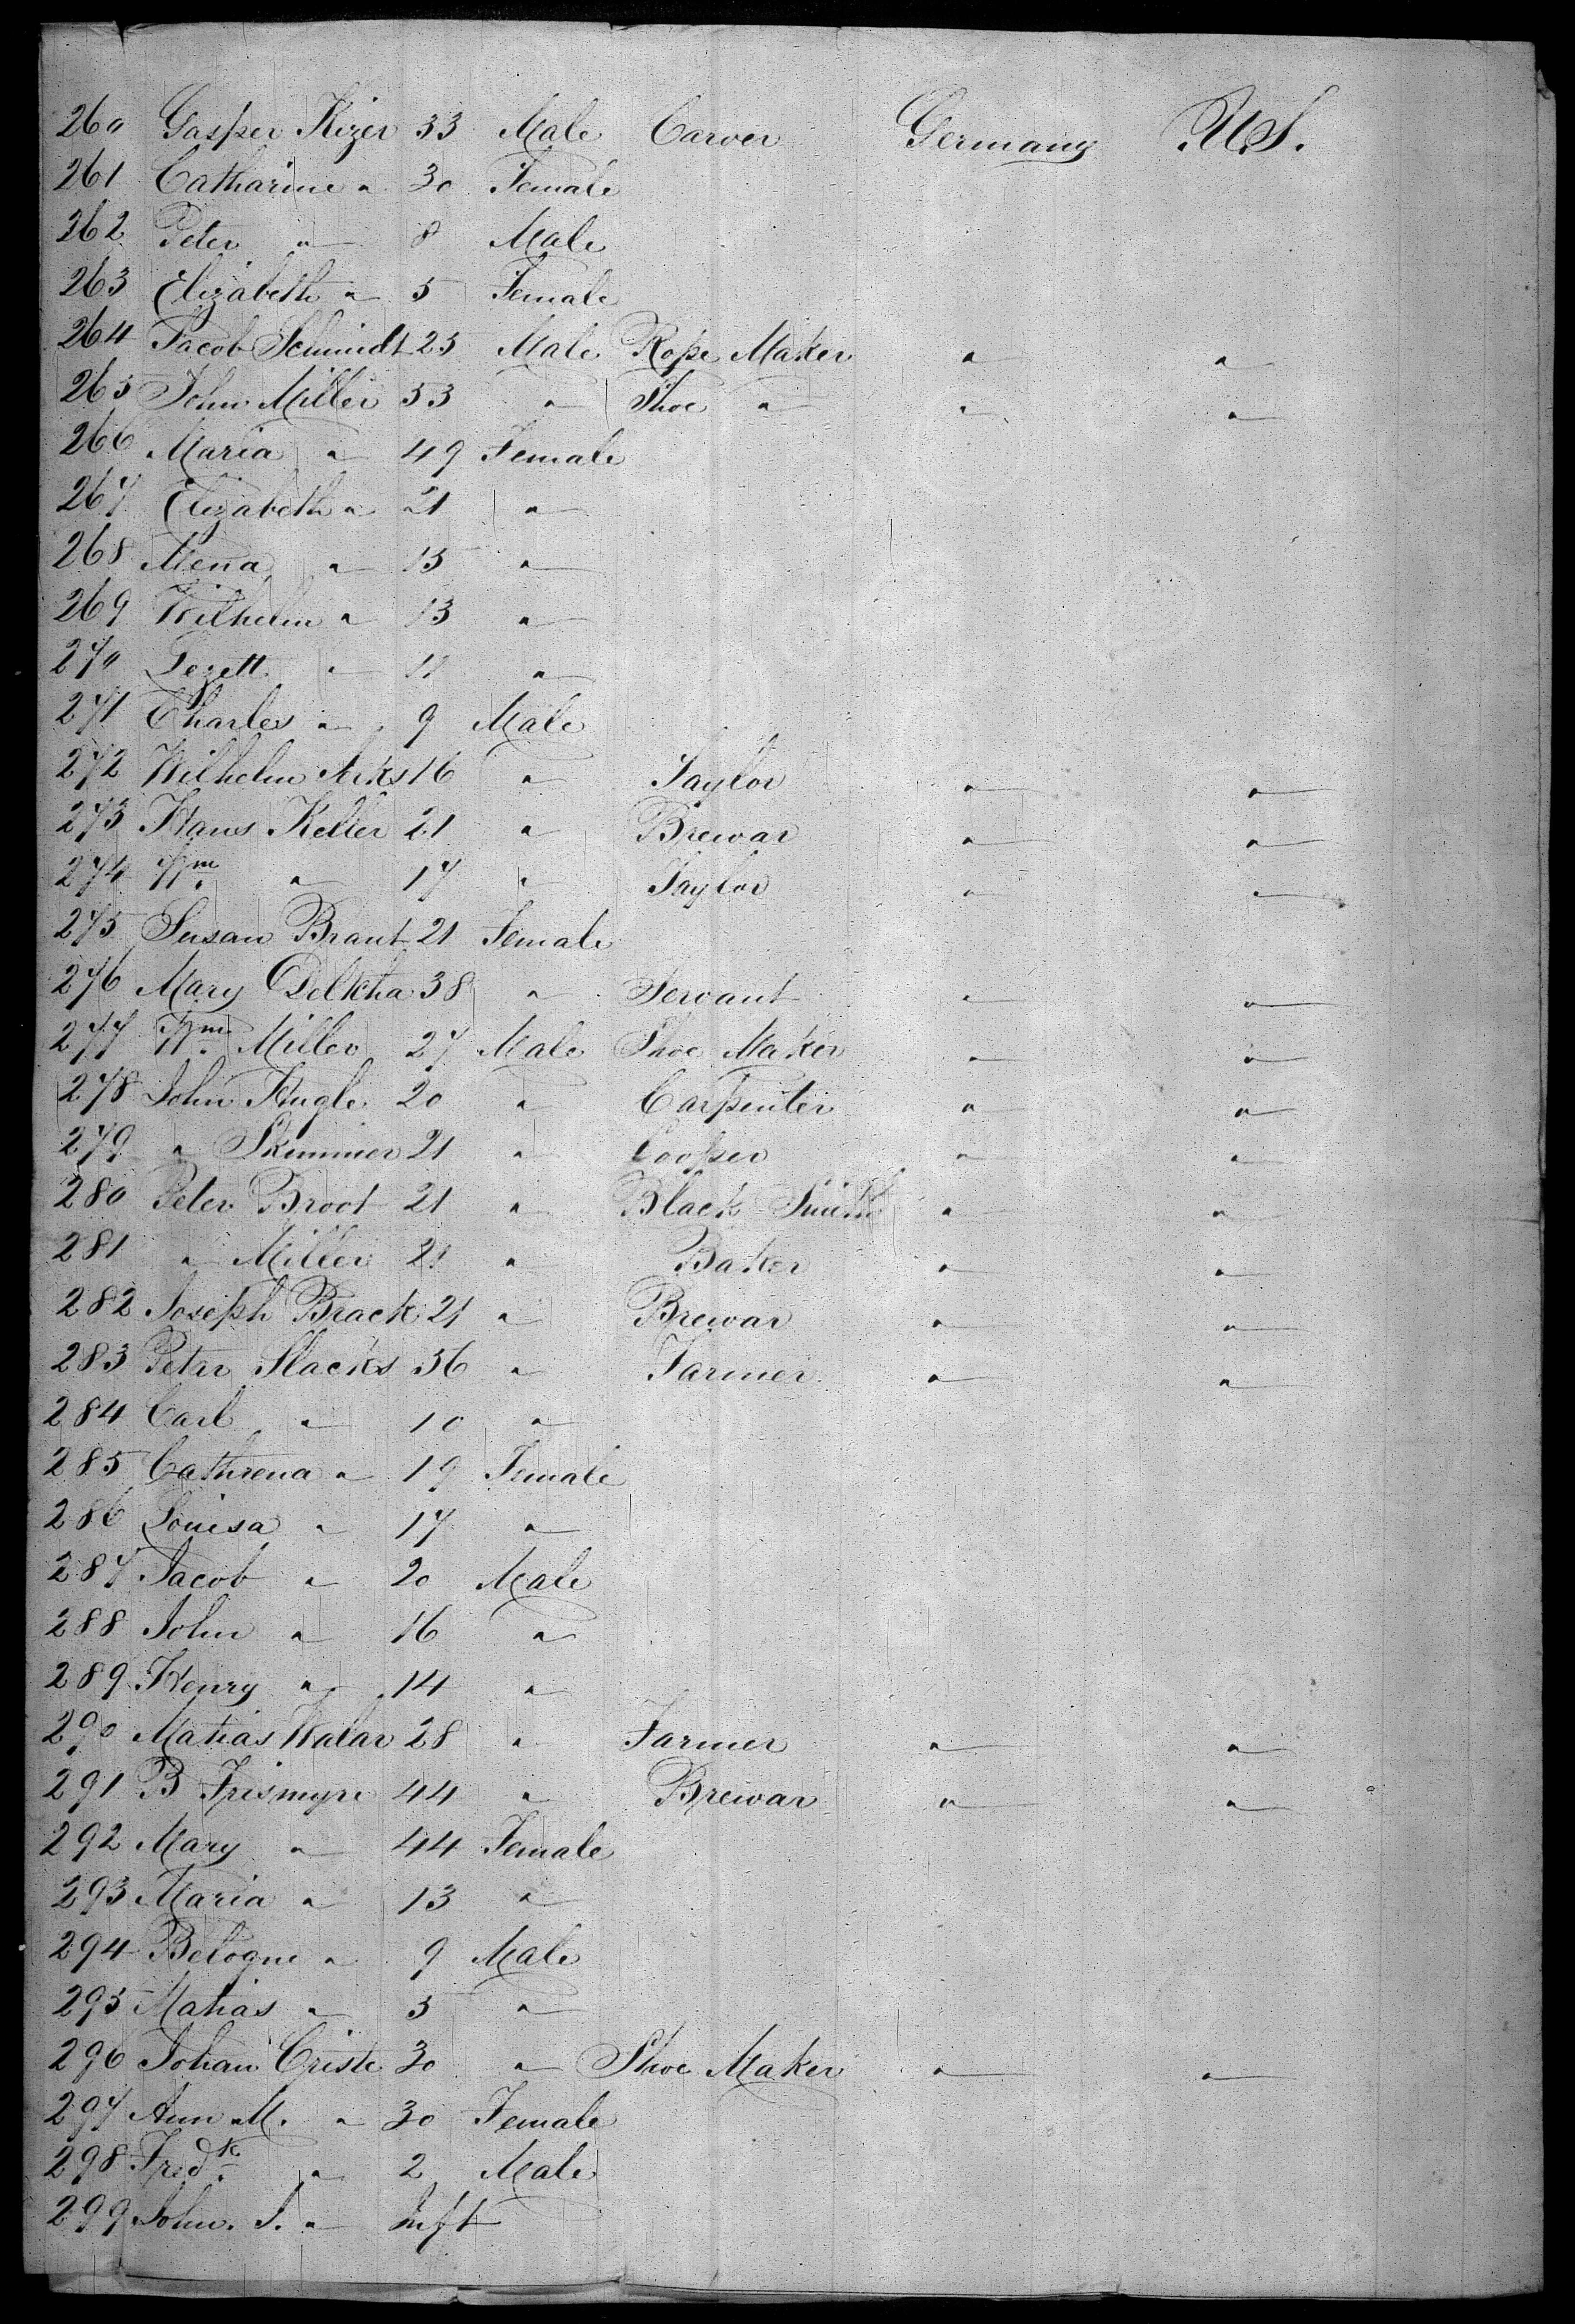 260 Gasper Kizer 33 Male Carver Germany U.S.
261 Catharine " 30 Female
262 Peter " 8 Male
263 Elizabeth " 5 Female
264 Jacob Schmidt 25 Male Rope Maker " "
265 John Miller 53 " Shoe " " "
266 Maria " 49 Female
267 Elizabeth " 21 "
268 Mena " 15 "
269 Wilhelm " 13 "
270 Lezett " 11 "
271 Charles " 9 Male
272 Wilhelm 16 " Taylor " "
273 Hans Keller 21 " Brewar " "
274 Wm. " 17 " Taylor " "
275 Susan Brant 21 Female
276 Mary Delktha 38 " Servant " "
277 Wm. Miller 27 Male Shoe Maker " "
278 John Hugle 20 " Carpenter " "
279 " Skimmer 21 " Cooper " "
280 Peter Broot 21 " Black Smith " "
281 " Miller 21 " Baker " "
282 Joseph Brack 21 " Brewar " "
283 Peter Slacks 36 " Farmer " "
284 Carl " 10 "
285 Cathrena " 19 Female
286 Louisa " 17 "
287 Jacob " 20 Male
288 John " 16 "
289 Henry " 14 "
290 Matias Walar 28 " Farmer " "
291 B Frismyre 44 " Brewar " "
292 Mary " 44 Female
293 Maria " 13 "
294 Belogne " 9 Male
295 Matias " 3 "
296 Johan Criste 30 " Shoe Maker " "
297 Ann M. " 30 Female
298 Fredk. " 2 Male
299 John. J. " Inft